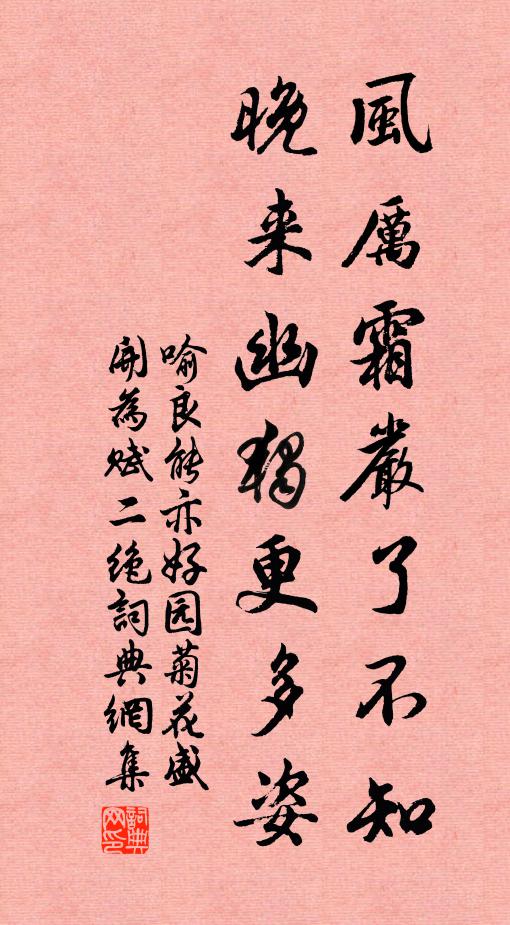 風厲霜嚴了不知
晚来幽獨更多姿
喻良能亦好园菊花盛
開為赋二绝詞典網集
詞典
网印